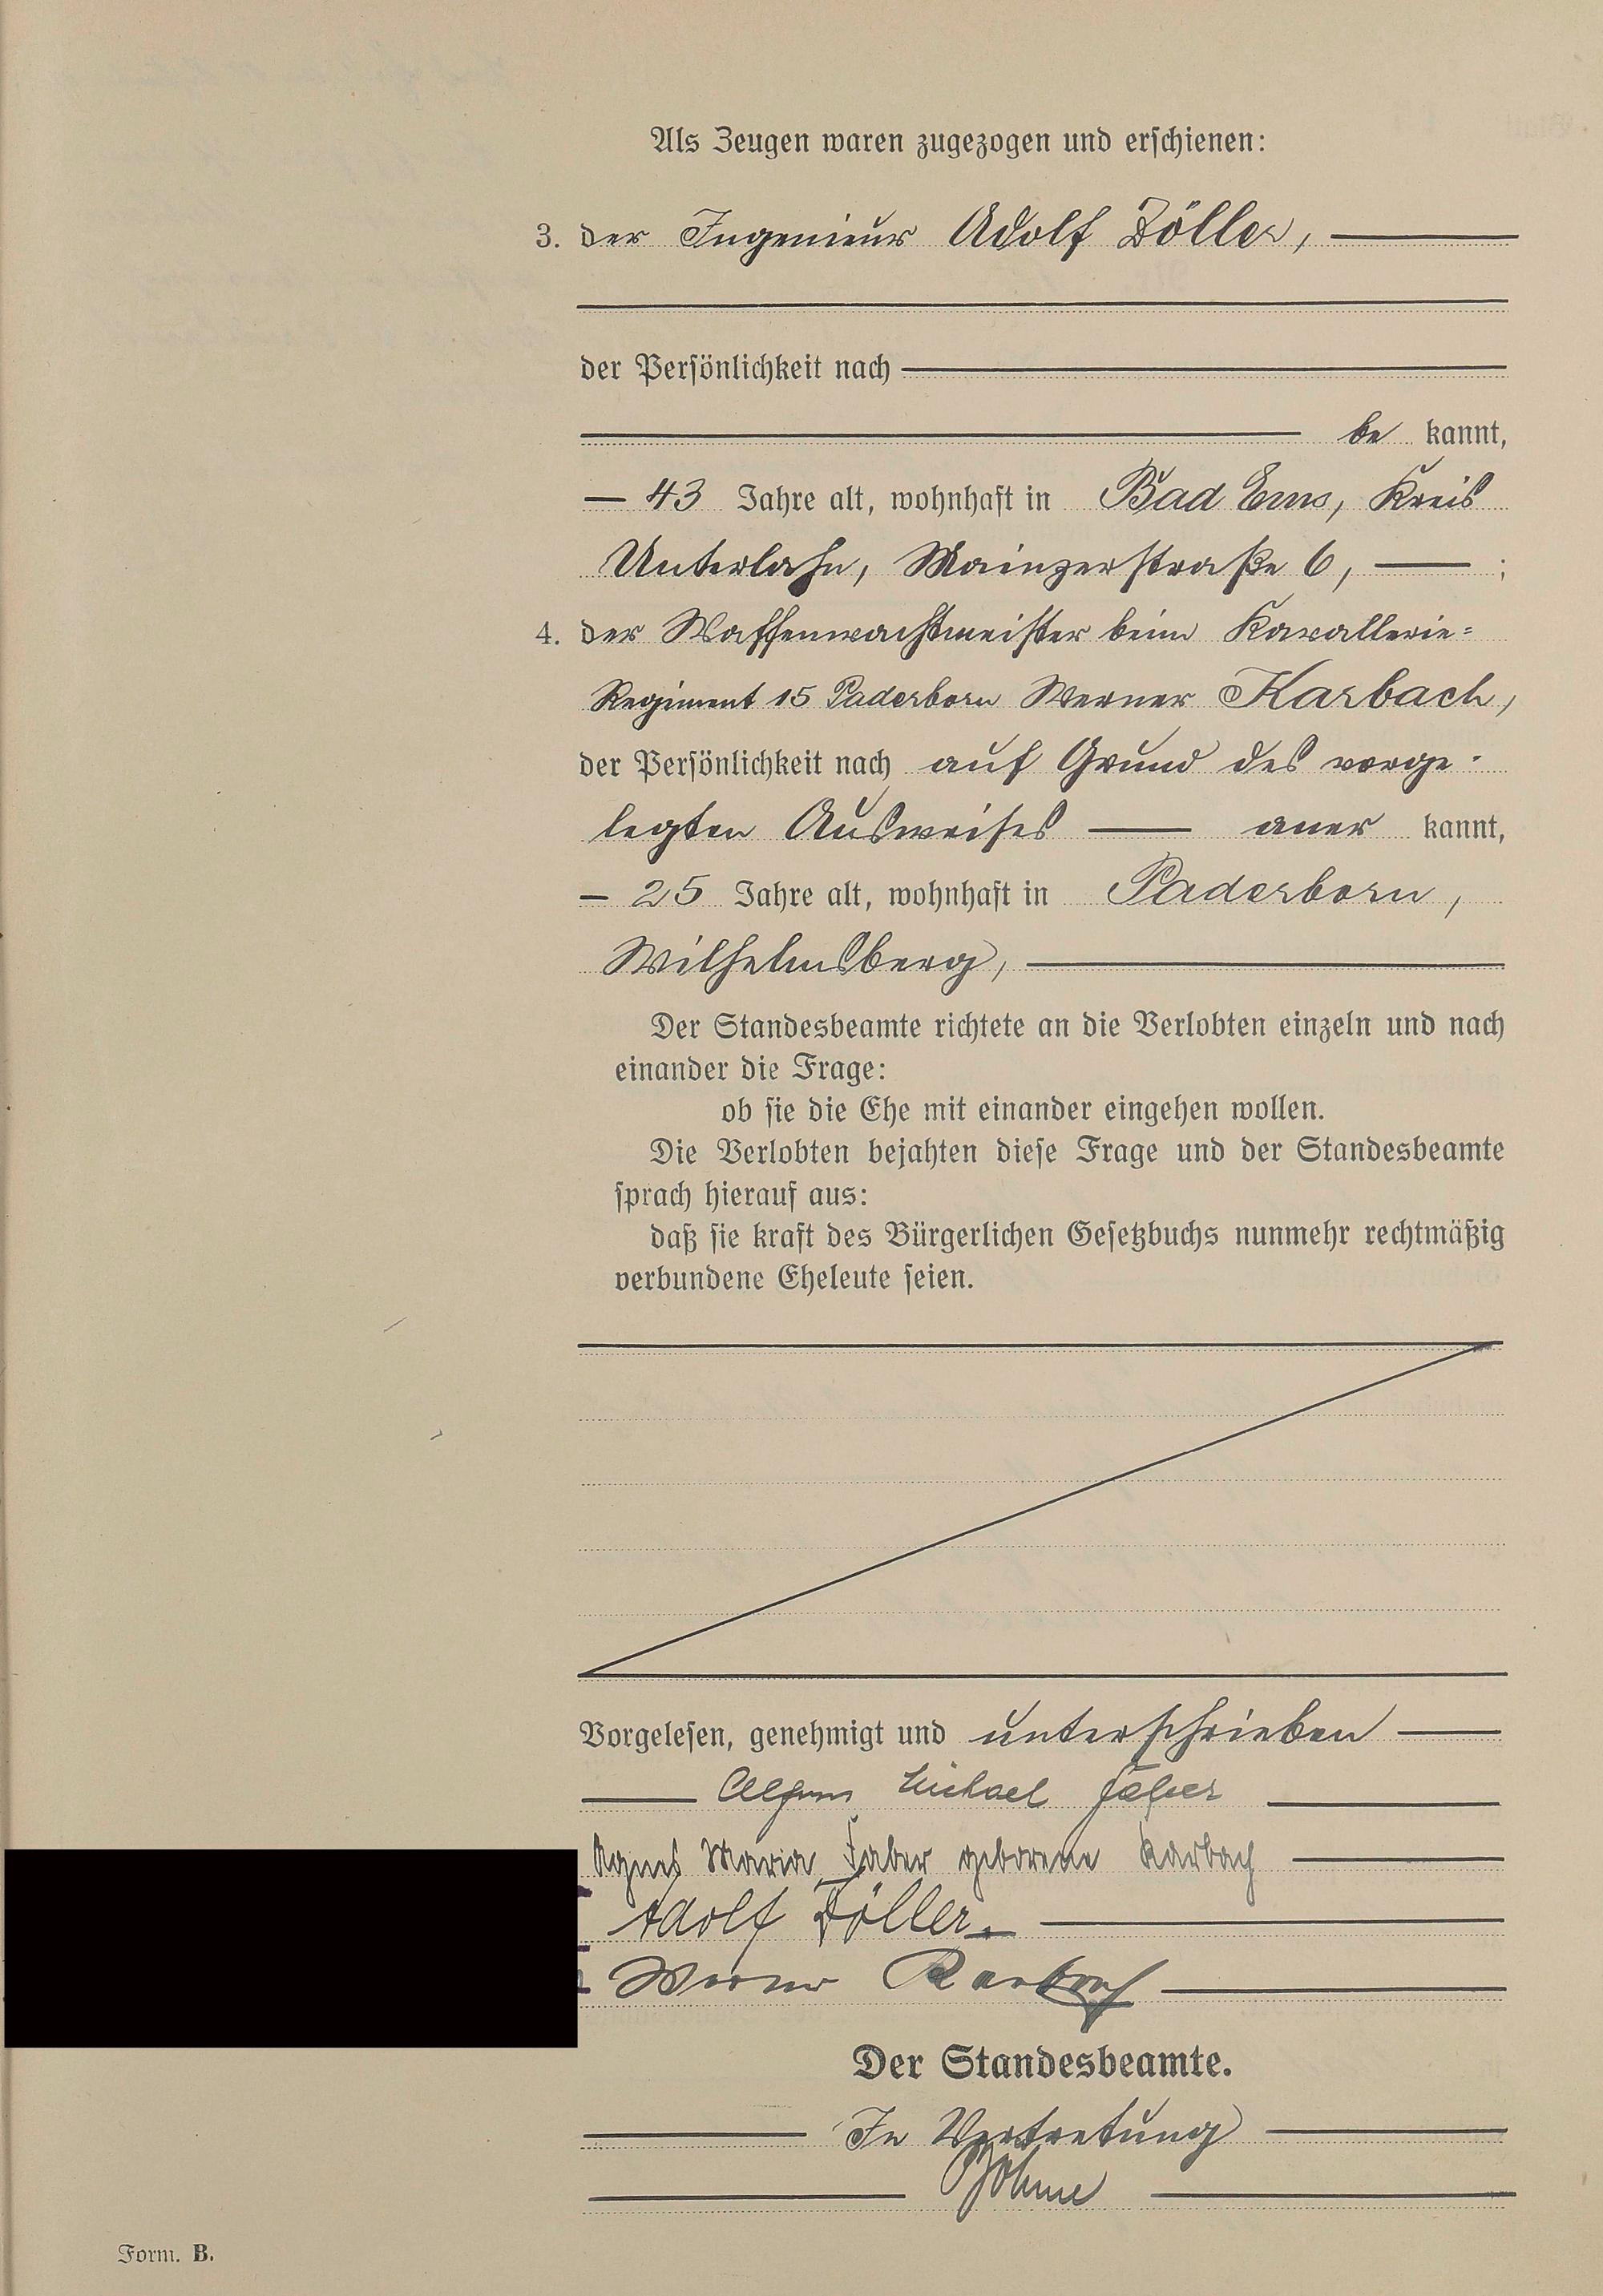 Als Zeugen waren zugezogen und erschienen:
3. der Ingenieur Adolf Zöller,
der Persönlichkeit nach
be kannt,
43 Jahre alt, wohnhaft in Bad Ems, Kreis
Unterlahn, Mainzerstraße 6, ;
4. der Waffenwachtmeister beim Kavallerie=
Regiment 15 Paderborn Werner Karbach,
der Persönlichkeit nach auf Grund des vorge-
legten Ausweises aner kannt,
25 Jahre alt, wohnhaft in Paderborn,
Wilhelmsberg,
Der Standesbeamte richtete an die Verlobten einzeln und nach
einander die Frage:
ob sie die Ehe mit einander eingehen wollen.
Die Verlobten bejahten diese Frage und der Standesbeamte
sprach hierauf aus:
daß sie kraft des Bürgerlichen Gesetzbuchs nunmehr rechtmäßig
verbundene Eheleute seien.
Vorgelesen, genehmigt und unterschrieben
Alfons Michael Faber
Agnes Maria Faber geborene Karbach
Adolf Zöller.
Werner Karbach
Der Standesbeamte.
In Vertretung
Böhme
Form. B.